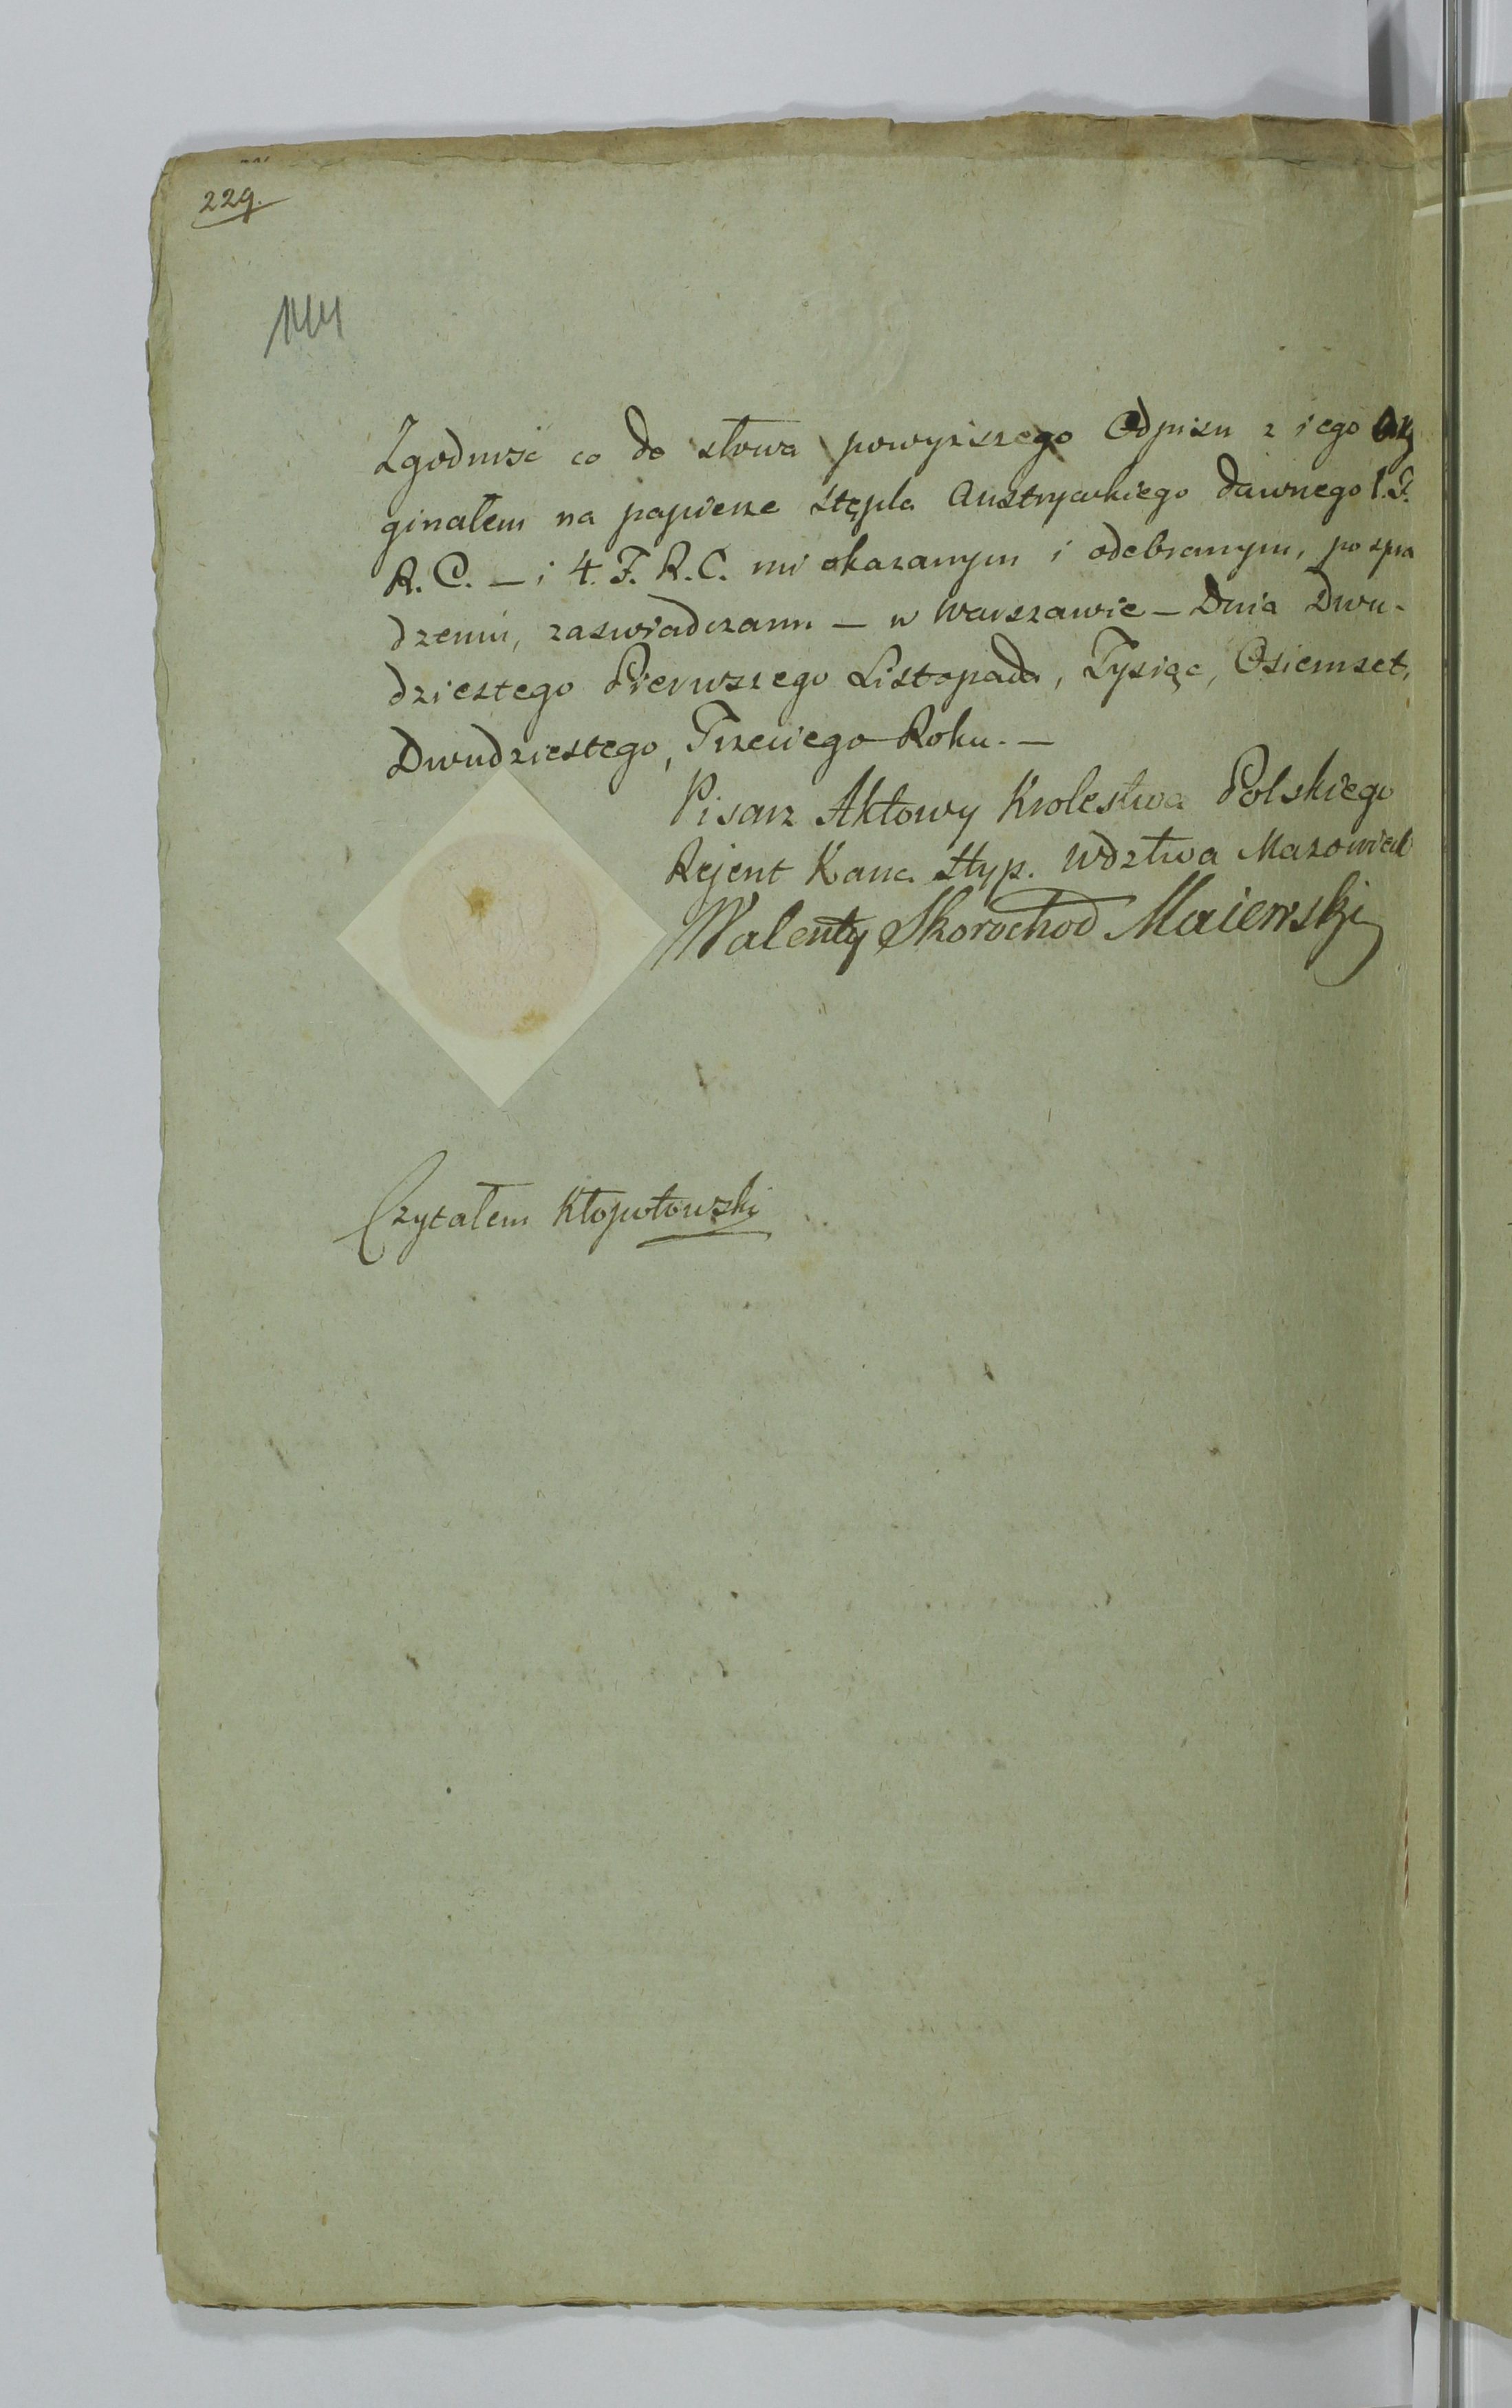 229.
144
Zgodność co do słowa powyższego Odpisu z iego Ory
ginałem na papierze stępla Austryackiego dawnego 1. F.
R. C. — i 4. F. R. C. mi okazanym i odebranym, po spra
dzeniu, zaswiadczam — w Warszawie — Dnia Dwu-
dziestego Pierwszego Listopada, Tysiąc, Osiemset,
Dwudziestego, Trzeciego Roku. —
Pisarz Aktowy Krolestwa Polskiego
Rejent Kanc. Hyp. Wdztwa Mazowiec
Walenty Skorochod Maiewski
Czytałem Kłopotowski